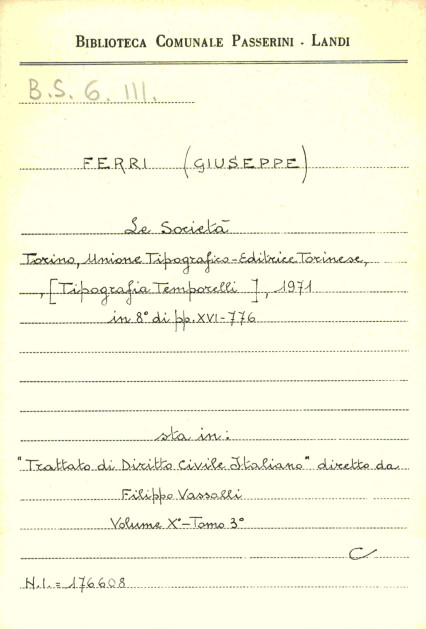 BIBLIOTECA COMUNALE PASSERINI - LANDI
B.S. 6. III.
FERRI (GIUSEPPE)
Le Società
Torino, Unione Tipografico-Editrice Torinese,
, [Tipografia Temporelli], 1971
in 8° di pp. XVI-776
sta in:
"Trattato di Diritto Civile Italiano" diretto da
Filippo Vassalli
Volume X°-Tomo 3°
C
N.I. = 176608